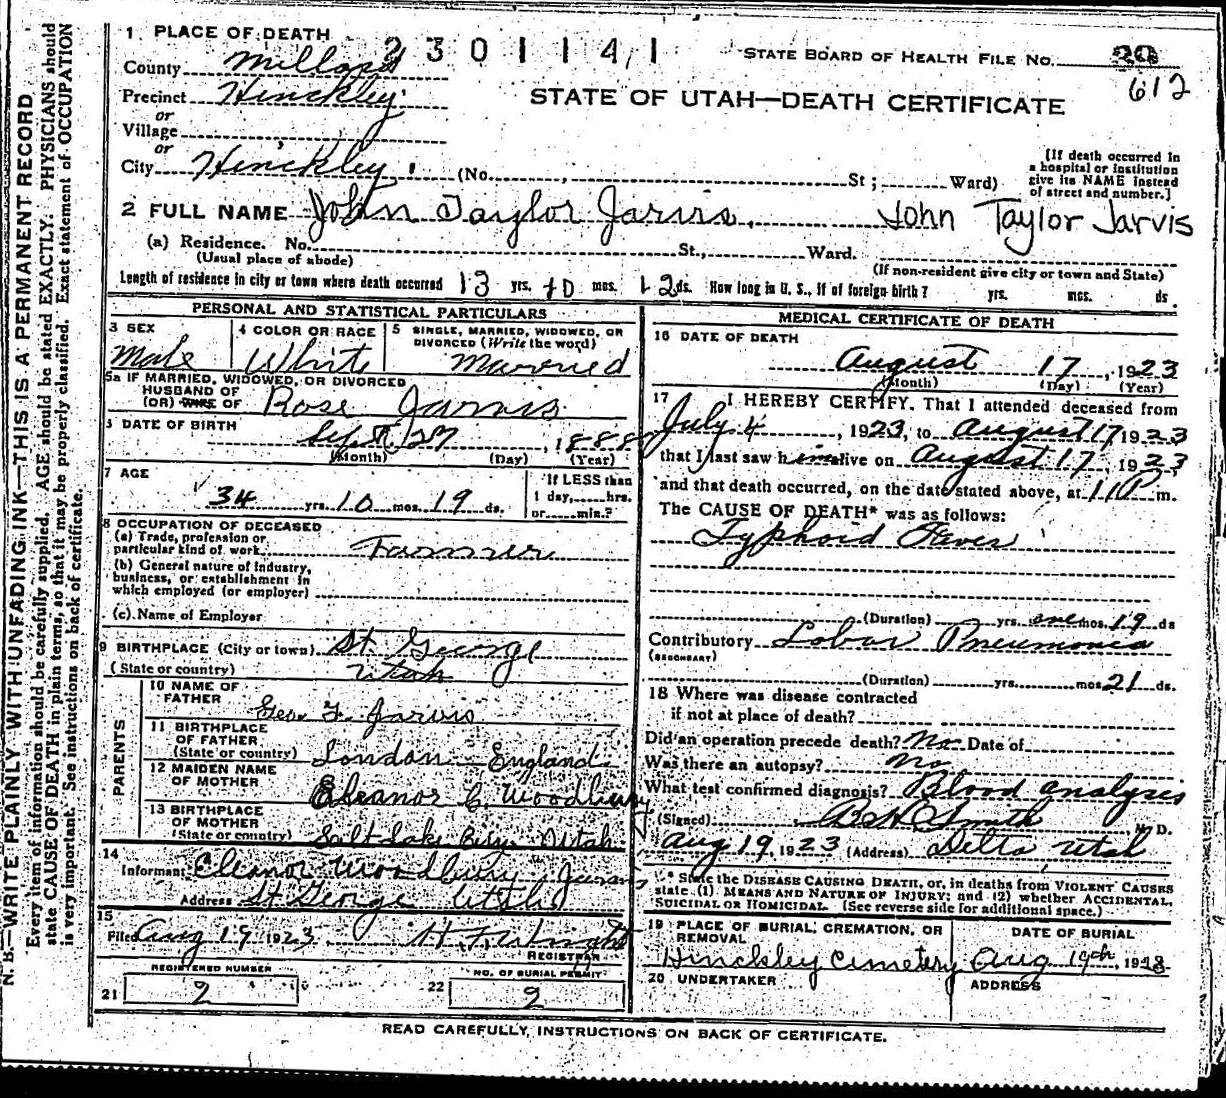 1 PLACE OF DEATH
2301141
STATE BOARD OF HEALTH FILE No. 20
612
County Millard
Precinct Hinckley
or
Village
or
City Hinckley. (No. St; Ward)
STATE OF UTAH—DEATH CERTIFICATE
[If death occurred in
a hospital or institution
give its NAME instead
of street and number.]
2 FULL NAME John Taylor Jarvis. John Taylor Jarvis
(a) Residence. No. St., Ward.
(Usual place of abode)
(If non-resident give city or town and State)
Length of residence in city or town where death occurred 13 yrs. 10 mos. 12 ds. How long in U. S., if of foreign birth? yrs. mos. ds.
PERSONAL AND STATISTICAL PARTICULARS
3 SEX
Male
4 COLOR OR RACE
White
5 SINGLE, MARRIED, WIDOWED, OR
DIVORCED (Write the word)
Married
5a IF MARRIED, WIDOWED, OR DIVORCED
HUSBAND OF
(OR) WIFE OF Rose Jarvis
DATE OF BIRTH
Sept 27, 1888
(Month) (Day) (Year)
7 AGE
34 yrs. 10 mos. 19 ds.
If LESS than
1 day, hrs.
or min.?
8 OCCUPATION OF DECEASED
(a) Trade, profession or
particular kind of work Farmer
(b) General nature of industry,
business, or establishment in
which employed (or employer)
(c) Name of Employer
9 BIRTHPLACE (City or town) St. George
(State or country) Utah
PARENTS
10 NAME OF
FATHER Geo. F. Jarvis
11 BIRTHPLACE
OF FATHER
(State or country) London England
12 MAIDEN NAME
OF MOTHER Eleanor C. Woodbury
13 BIRTHPLACE
OF MOTHER
(State or country) Salt Lake City Utah
14
Informant Eleanor Woodbury Jarvis
Address St George Utah
15
Filed Aug 19 1923
REGISTRAR
REGISTERED NUMBER
21 2
NO. OF BURIAL PERMIT
22 2
MEDICAL CERTIFICATE OF DEATH
16 DATE OF DEATH
August 17, 1923
(Month) (Day) (Year)
17 I HEREBY CERTIFY, That I attended deceased from
July 4, 1923, to August 17 1923
that I last saw him alive on August 17, 1923
and that death occurred, on the date stated above, at 11 P m.
The CAUSE OF DEATH* was as follows:
Typhoid Fever
(Duration) yrs. one mos. 19 ds
Contributory Lobar Pneumonia
(SECONDARY)
(Duration) yrs. mos 21 ds.
18 Where was disease contracted
if not at place of death?
Did an operation precede death? No Date of
Was there an autopsy? No
What test confirmed diagnosis? Blood analyses
(Signed) Smith M. D.
Aug 19, 1923 (Address) Delta Utah
* State the DISEASE CAUSING DEATH, or, in deaths from VIOLENT CAUSES
state (1) MEANS AND NATURE OF INJURY; and (2) whether ACCIDENTAL,
SUICIDAL OR HOMICIDAL. (See reverse side for additional space.)
19 PLACE OF BURIAL, CREMATION, OR
REMOVAL
Hinckley Cemetery
DATE OF BURIAL
Aug 19th, 1923
20 UNDERTAKER
ADDRESS
READ CAREFULLY, INSTRUCTIONS ON BACK OF CERTIFICATE.
N. B.—WRITE PLAINLY WITH UNFADING INK—THIS IS A PERMANENT RECORD
Every item of information should be carefully supplied. AGE should be stated EXACTLY. PHYSICIANS should
state CAUSE OF DEATH in plain terms, so that it may be properly classified. Exact statement of OCCUPATION
is very important. See instructions on back of certificate.